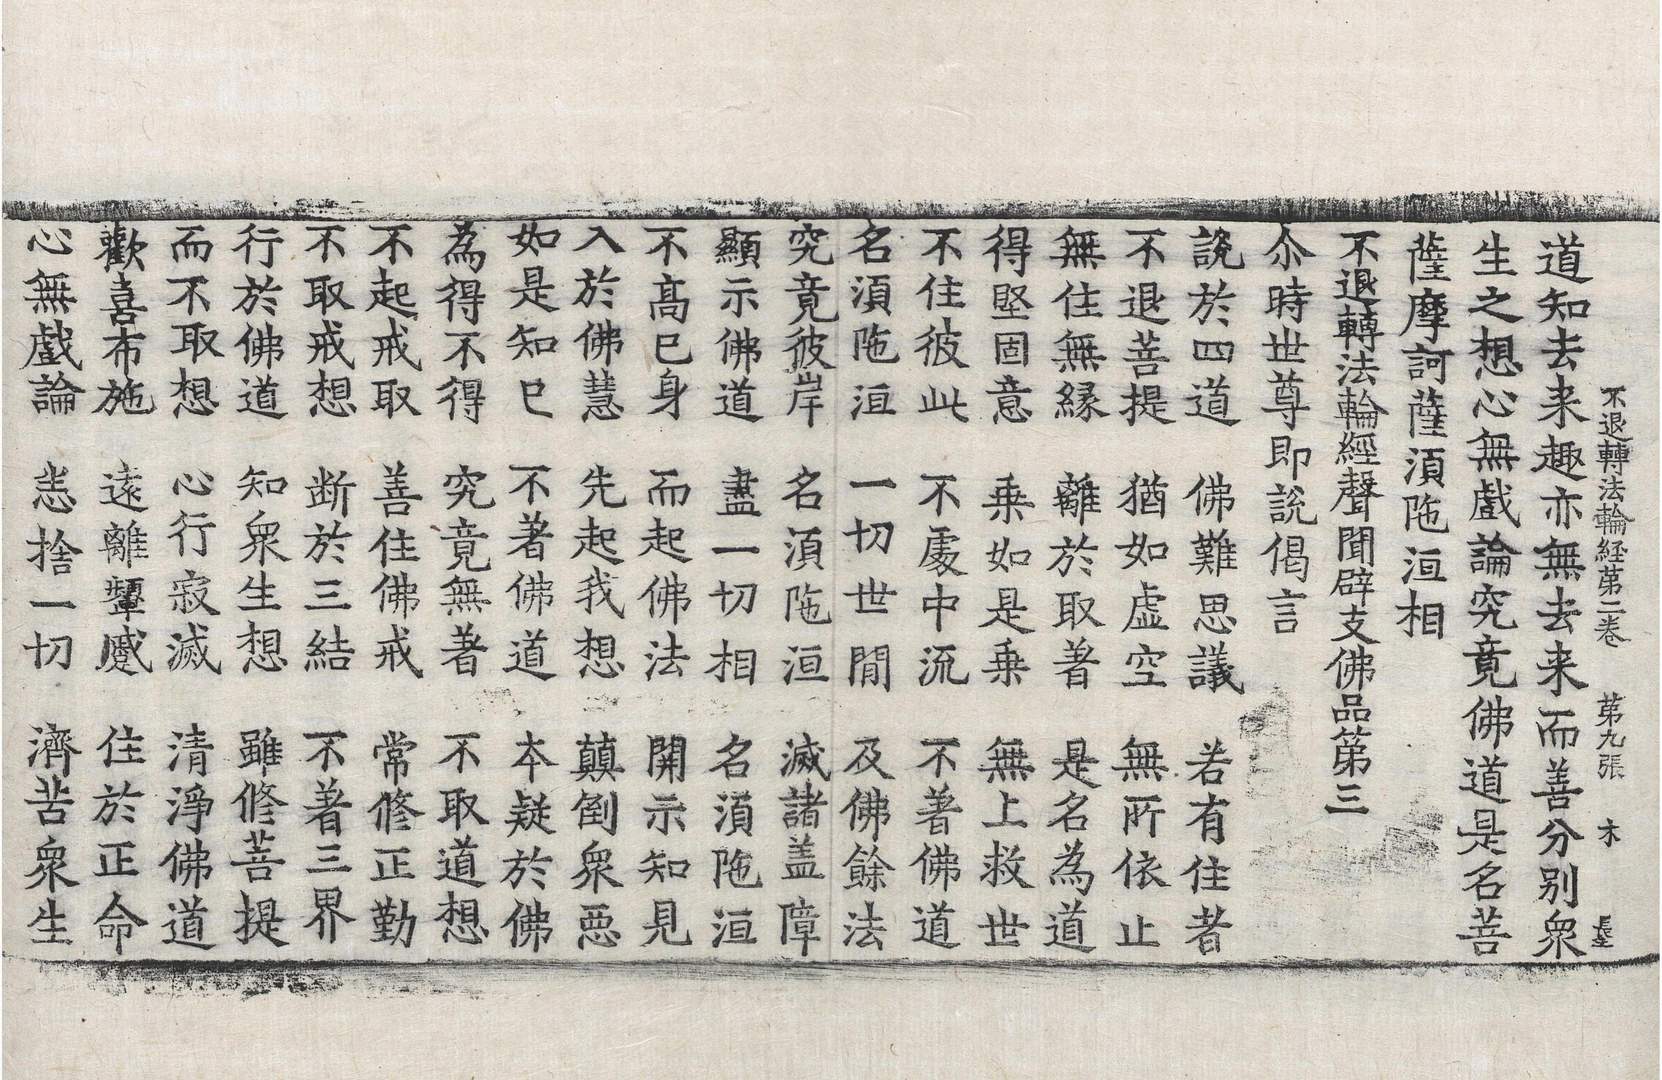 不退轉法輪経第二卷 第九張 木
道知去来趣亦無去来而善分別衆
生之想心無戲論究竟佛道是名菩
薩摩訶薩湏陁洹相
不退轉法輪經聲聞辟支佛品第三
尒時世尊即說偈言
說於四道 佛難思議 若有住者
不退菩提 猶如虛空 無所依止
無住無緣 離於取著 是名為道
得堅固意 乗如是乗 無上救世
不住彼此 不處中流 不著佛道
名湏陁洹 一切世間 及佛餘法
究竟彼岸 名湏陁洹 滅諸盖障
顯示佛道 盡一切相 名湏陁洹
不髙已身 而起佛法 開示知見
入於佛慧 先起我想 顛倒衆惡
如是知已 不著佛道 本疑於佛
為得不得 究竟無著 不取道想
不起戒取 善住佛戒 常修正勤
不取戒想 断於三結 不著三界
行於佛道 知衆生想 雖修菩提
而不取想 心行寂滅 清淨佛道
歡喜布施 遠離顰蹙 住於正命
心無戲論 悉捨一切 濟苦衆生